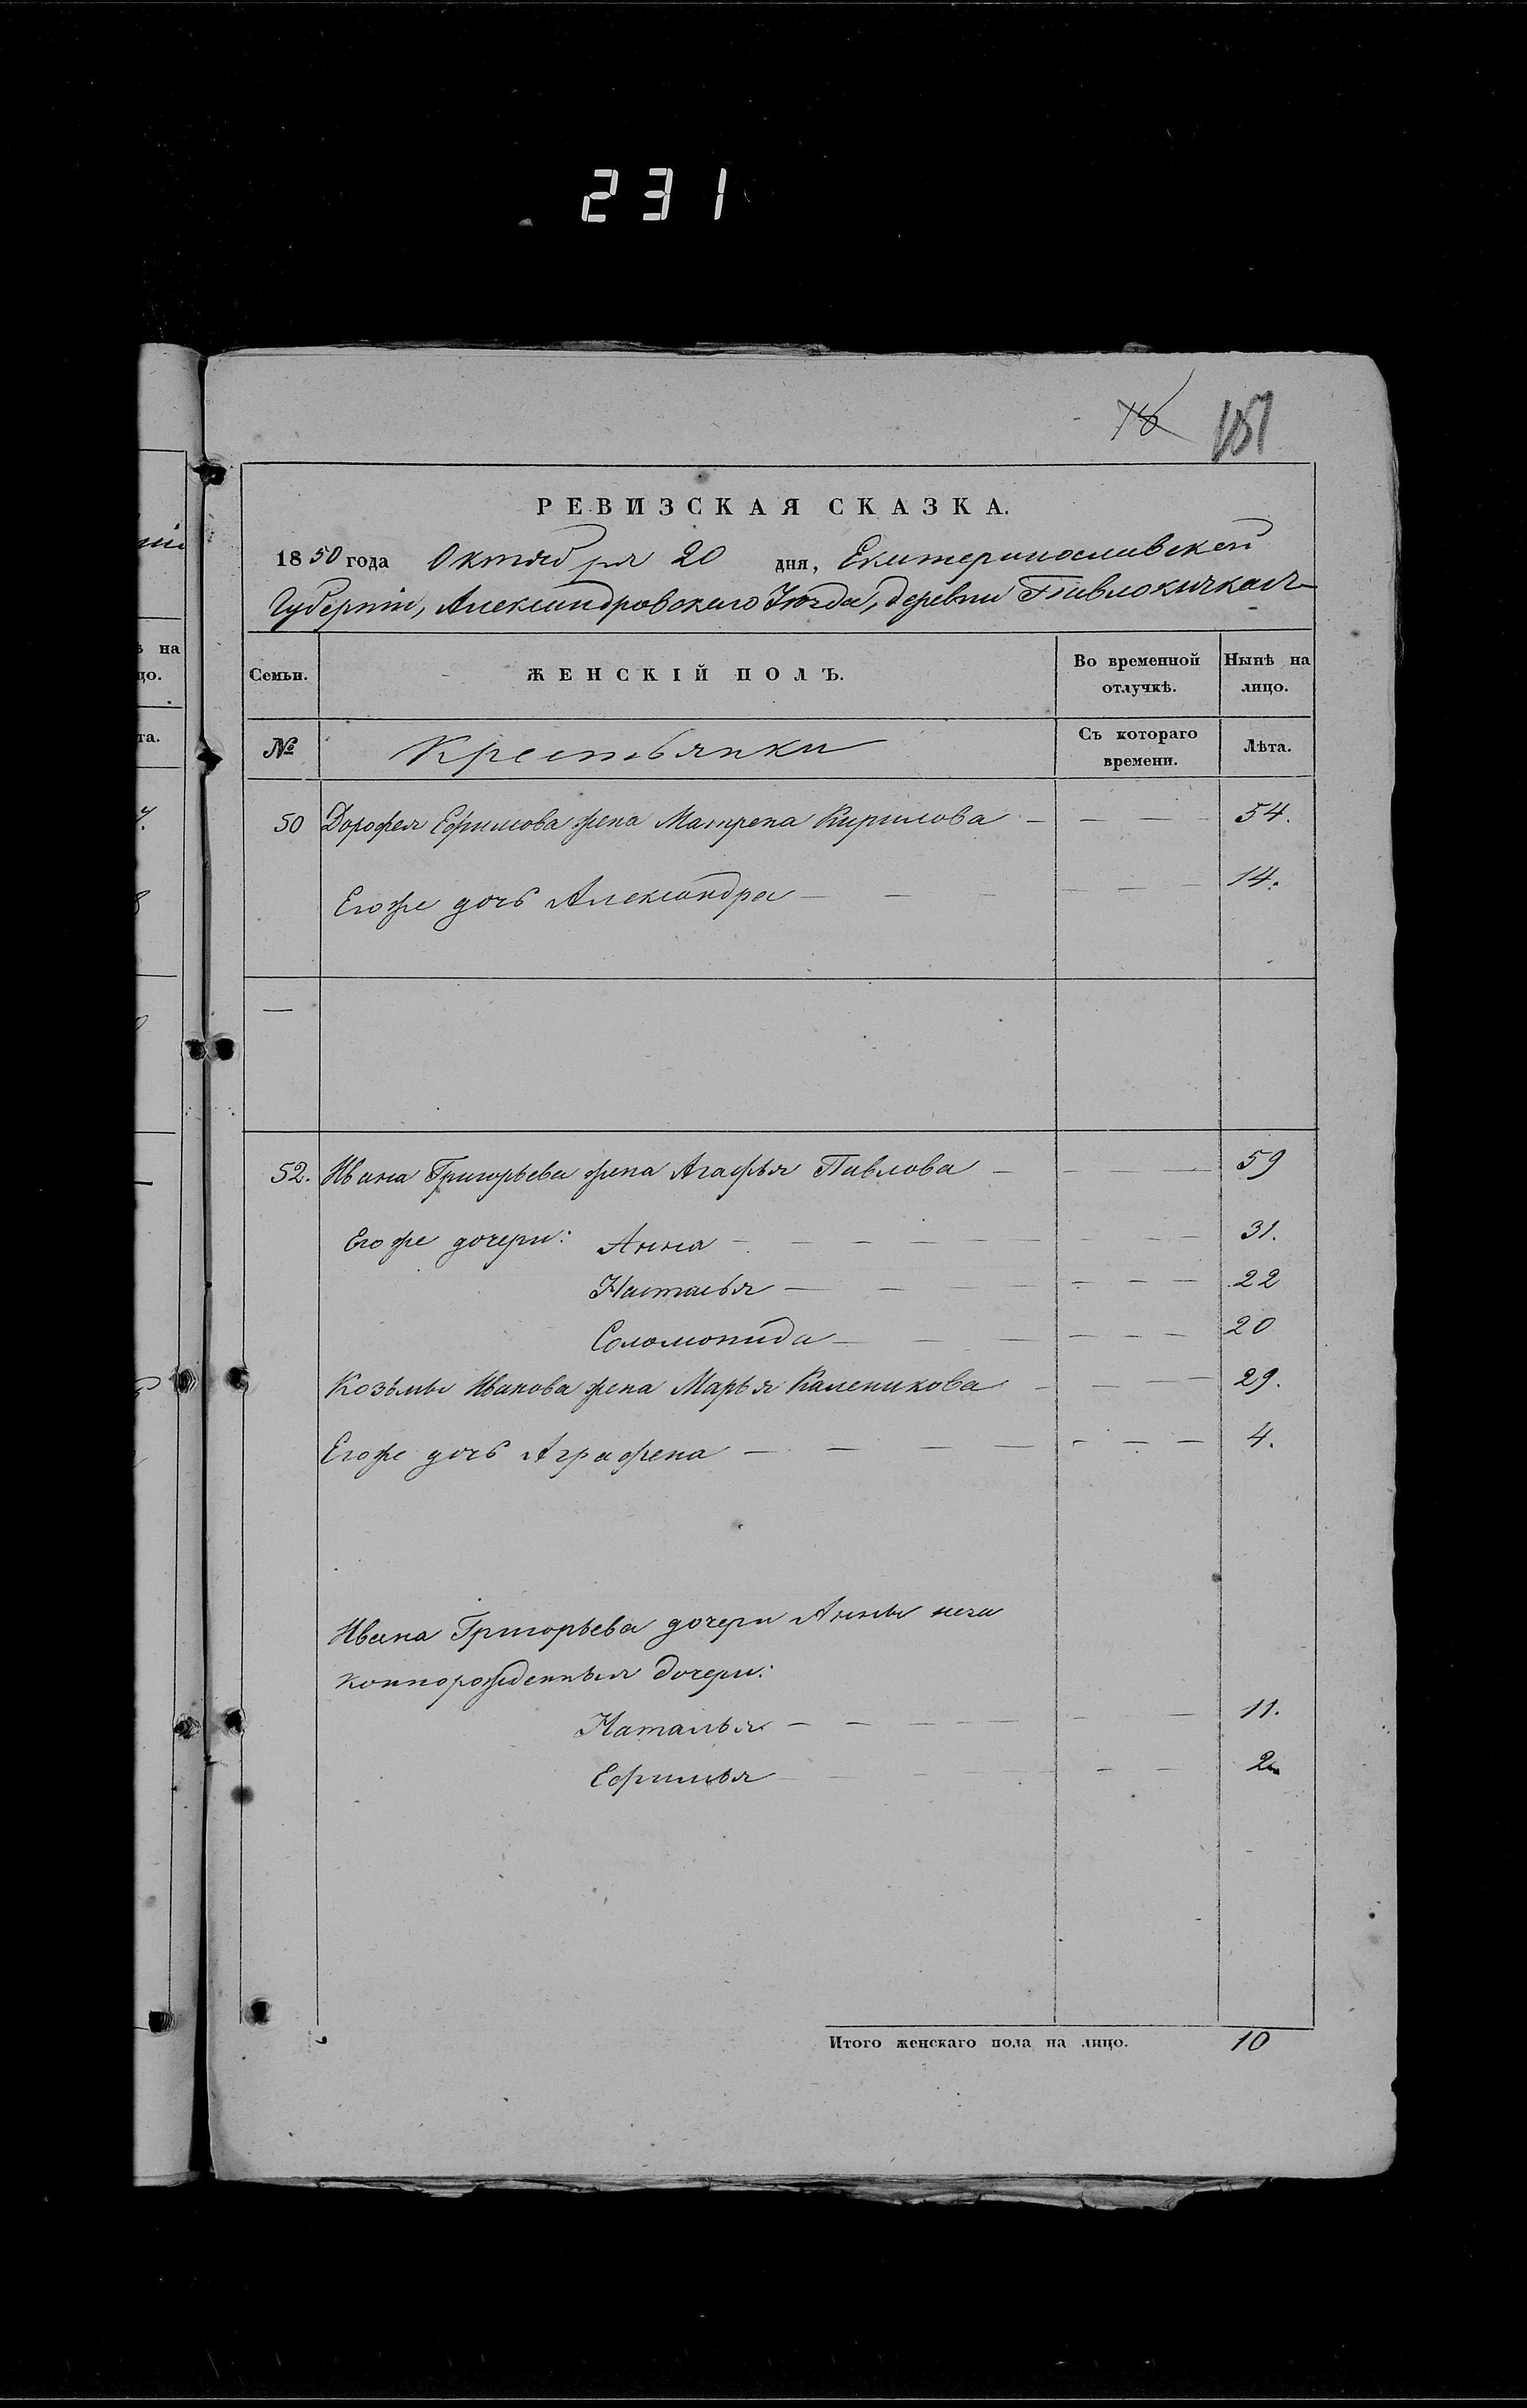 231
78 151
РЕВИЗСКАЯ СКАЗКА.
1850 года Октября 20 дня, Екатеринославской
Губерніи, Александровскаго Уѣзда, деревни Павлокичкасъ
Семьи. ЖЕНСКІЙ ПОЛЪ. Во временной отлучкѣ. Нынѣ на лицо.
№ Крестьянки Съ котораго времени. Лѣта.
50 Дорофея Ефимова жена Матрена Кирилова — — — 54.
Егоже дочь Александра — — — — — — 14.
—
52. Ивана Григорьева жена Агафья Павлова — — — 59
Егоже дочери: Анна — — — — — — — 31.
Настасья — — — — — — 22
Соломонида — — — — — — 20
Козьмы Иванова жена Марья Каленикова — — — — 29.
Егоже дочь Аграфена — — — — — — — 4.
Ивана Григорьева дочери Анны неза
коннорожденныя дочери:
Наталья — — — — — — — 11.
Ефимья — — — — — — 2
Итого женскаго пола на лицо. 10